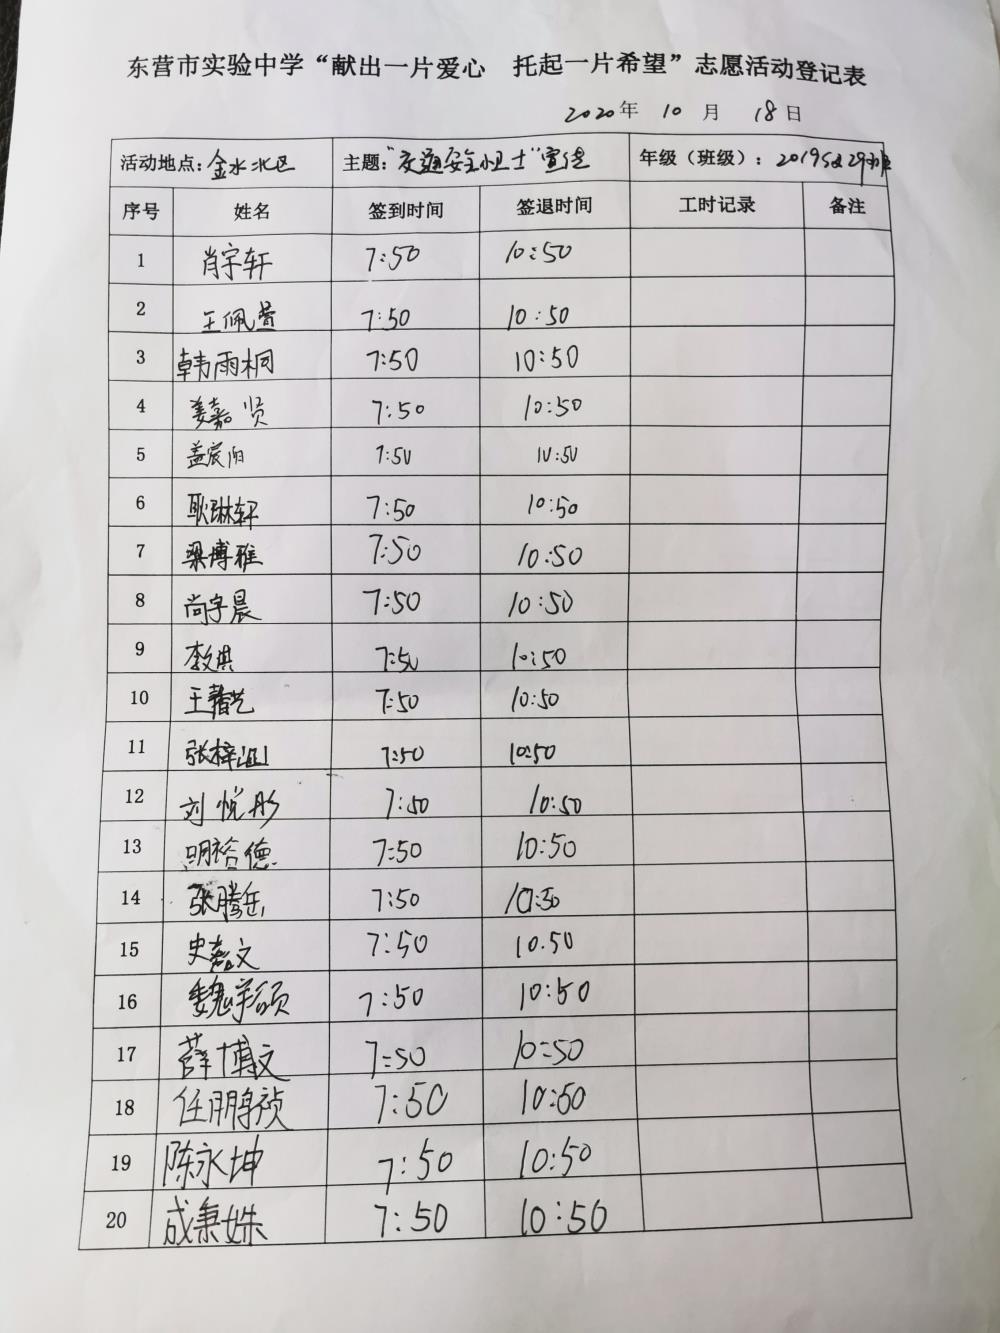 东营市实验中学“献出一片爱心 托起一片希望”志愿活动登记表
2020年 10月 18日
活动地点：金水北区 主题：“交通安全小卫士”宣传 年级（班级）：2019级29班
序号 姓名 签到时间 签退时间 工时记录 备注
1 肖宇轩 7:50 10:50
2 王佩萱 7:50 10:50
3 韩雨桐 7:50 10:50
4 姜嘉贤 7:50 10:50
5 盖宸 7:50 10:50
6 耿琳轩 7:50 10:50
7 梁博雅 7:50 10:50
8 尚宇晨 7:50 10:50
9 7:50 10:50
10 王 艺 7:50 10:50
11 张梓 7:50 10:50
12 刘悦彤 7:50 10:50
13 明裕德 7:50 10:50
14 张腾岳 7:50 10:50
15 史 文 7:50 10.50
16 魏 硕 7:50 10:50
17 薛博文 7:50 10:50
18 任鹏祯 7:50 10:50
19 陈永坤 7:50 10:50
20 成秉姝 7:50 10:50